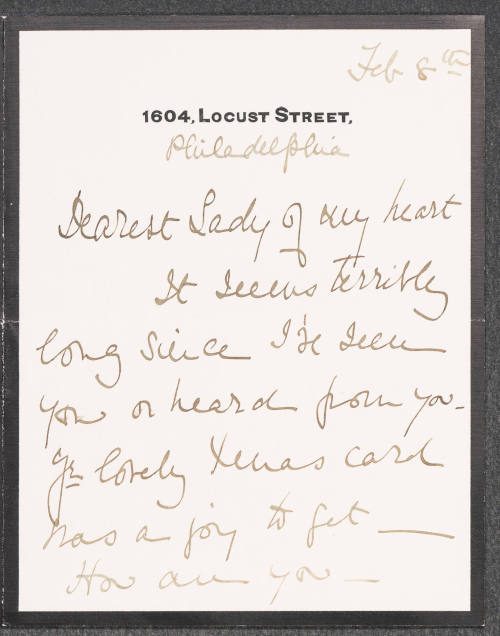 Feb 8th
1604, Locust Street,
Philadelphia
Dearest Lady of my heart
It seems terribly
long since I've seen
you or heard from you -
Yr lovely Xmas card
was a joy to get —
How are you —